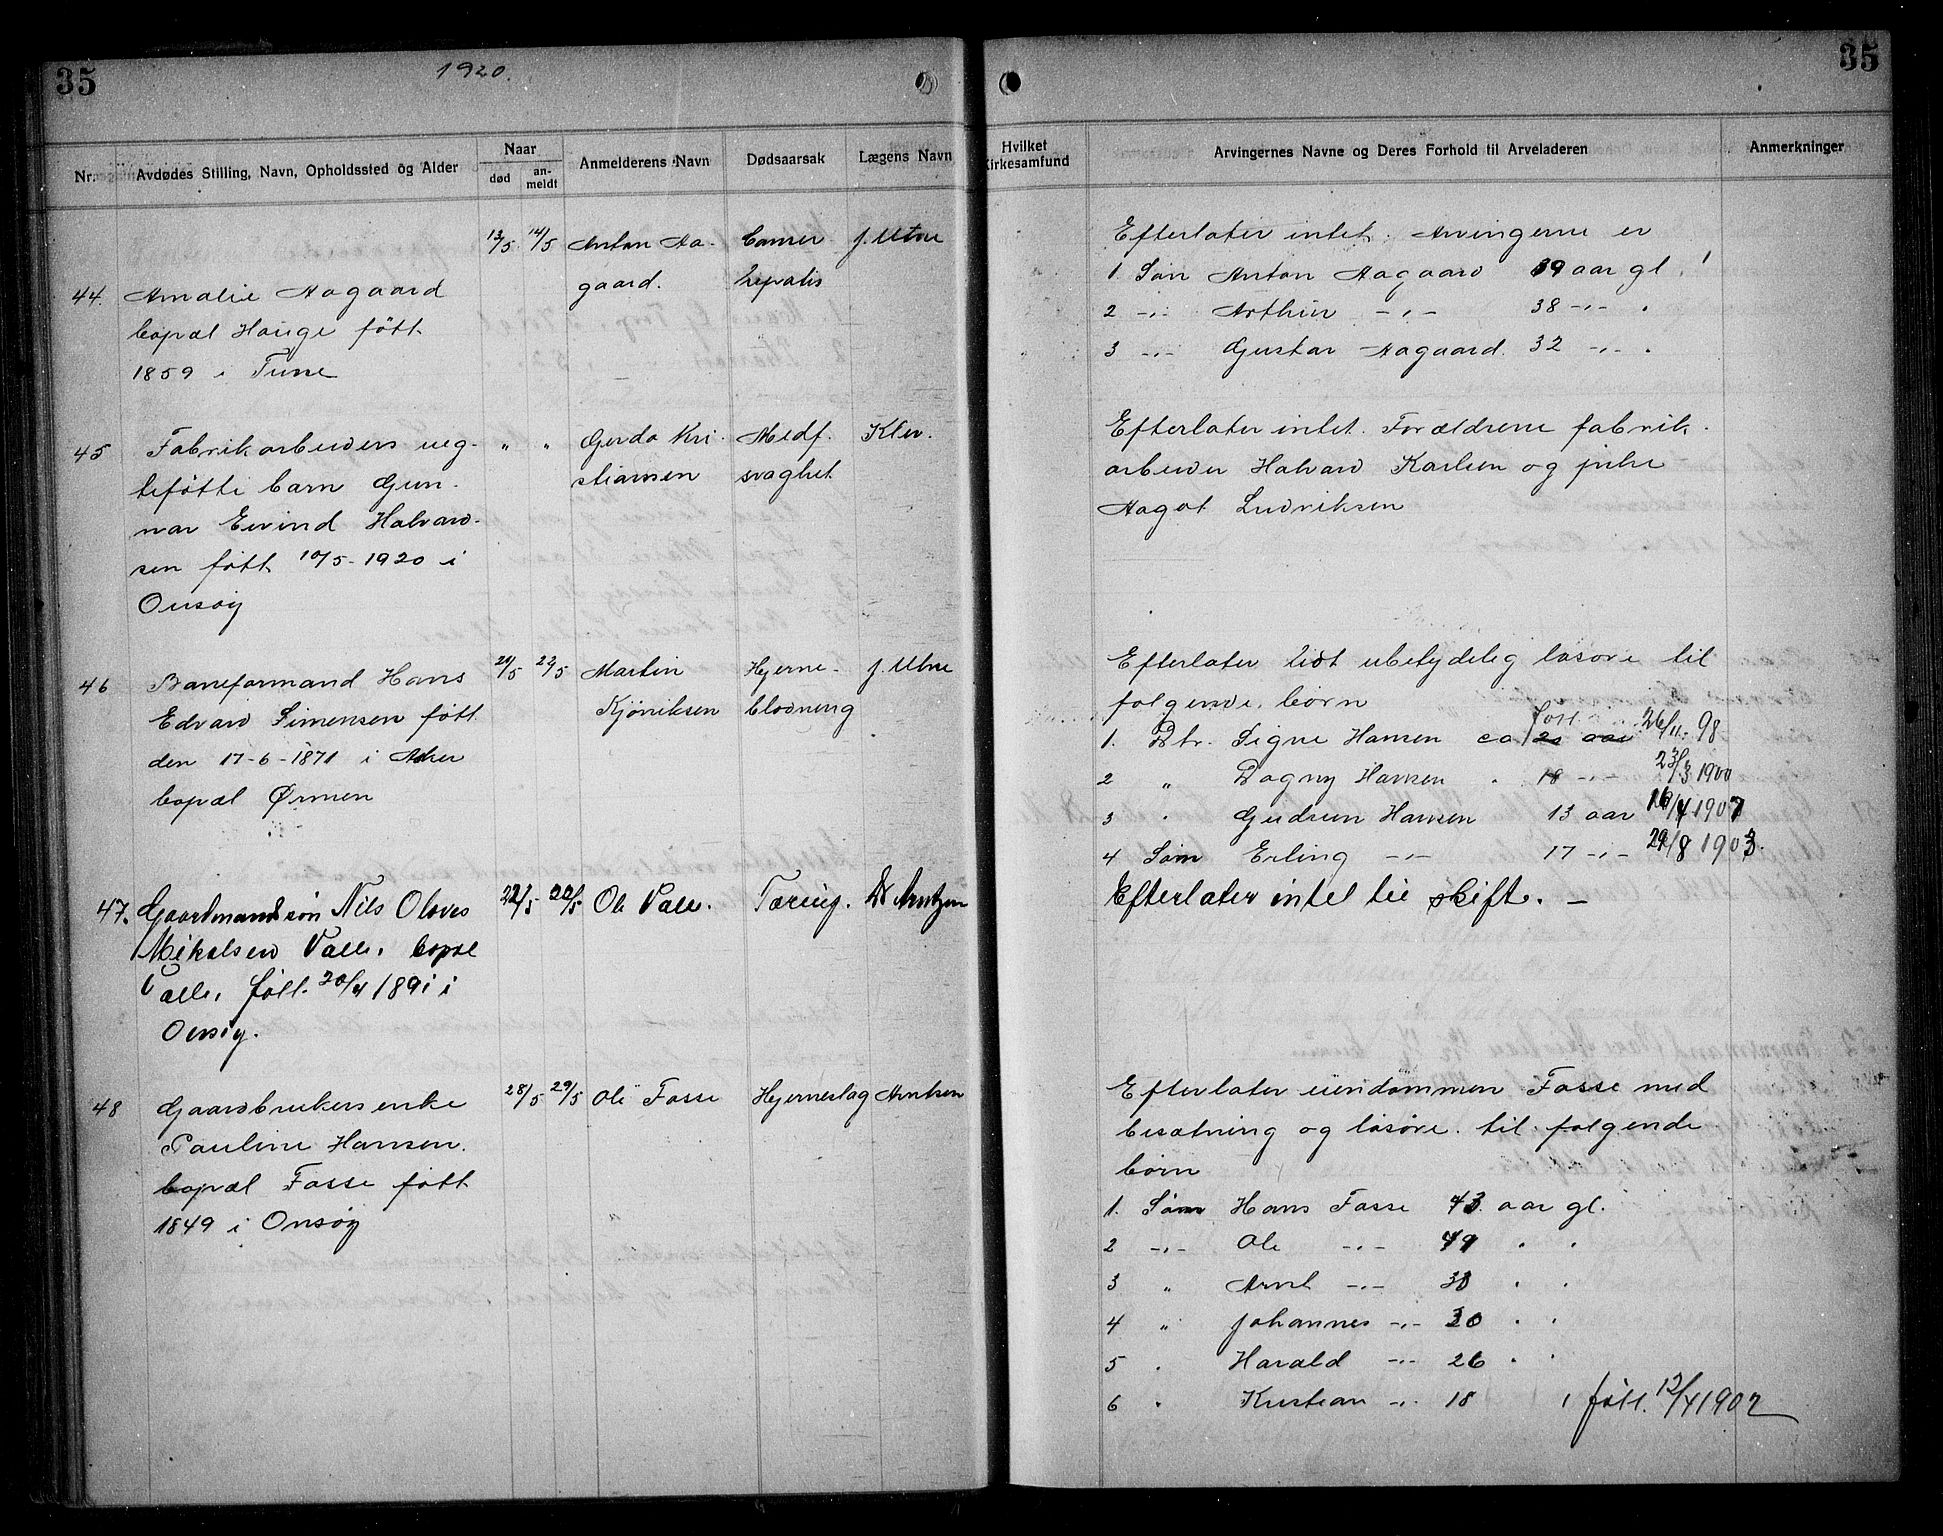 35
1920.
35
Nr.
Avdødes Stilling, Navn, Opholdssted og Alder
Naar
død
an-
meldt
Anmelderens Navn
Dødsaarsak
Lægens Navn
Hvilket
Kirkesamfund
Arvingernes Navne og Deres Forhold til Arveladeren
Anmerkninger
44.
Amalie Aagaard
bopæl Hauge født
1859 i Tune
13/5 14/5
Anton Aa-
gaard.
Canser
hepatis
J. Utne
Efterlater intet. Arvingerne er
1. Søn Anton Aagaard 39 aar gl.
2 -"- Arthur -"- 38 -"-
3 -"- Gustav Aagaard. 32 -"-
45
Fabrikarbeiders ueg-
tefødte barn Gun-
nar Eivind Halvard-
sen født 10/5-1920 i
Onsøy
" "
Gerda Kri-
stiansen
Medf.
svaghet
Klev.
Efterlater intet. Forældrene fabrik-
arbeider Halvard Karlsen og pike
Aagot Ludviksen
46
Baneformand Hans
Edvard Simensen født
den 17-6-1871 i Asker
bopæl Ørmen
20/5 22/5
Martin
Kjøniksen
Hjerne-
blødning
J. Utne
Efterlater lidt ubetydelig løsøre til
følgende børn
1. Dtr. Signe Hansen ca 21 aar født 26/11-98
2 " Dagny Hansen 18 -"- 23/3 1900
3 " Gudrun Hansen 13 aar 16/4 1907
4 Søn Erling -"- 17 -"- 29/8 1903.
47.
Gaardmandssøn Nils Olaves
Mikalsen Valle, bopæl
Valle, født 20/4 1891 i
Onsøy.
22/5 22/5
Ole Valle.
Tæring.
Dr Arntzen
Efterlater intet til skifte. -
48
Gaardbrukers enke
Pauline Hansen.
bopæl Fosse født
1849 i Onsøy
28/5 29/5
Ole Fosse
Hjerneslag
Arntsen
Efterlater eiendommen Fosse med
besætning og løsøre til følgende
børn
1. Søn Hans Fosse 43 aar gl.
2 -"- Ole -"- 41 " "
3 " Arnt -"- 38 " "
4 " Johannes -"- 30 " "
5 " Harald -"- 26 " "
6 " Kristian -"- 18 født 12/4 1902